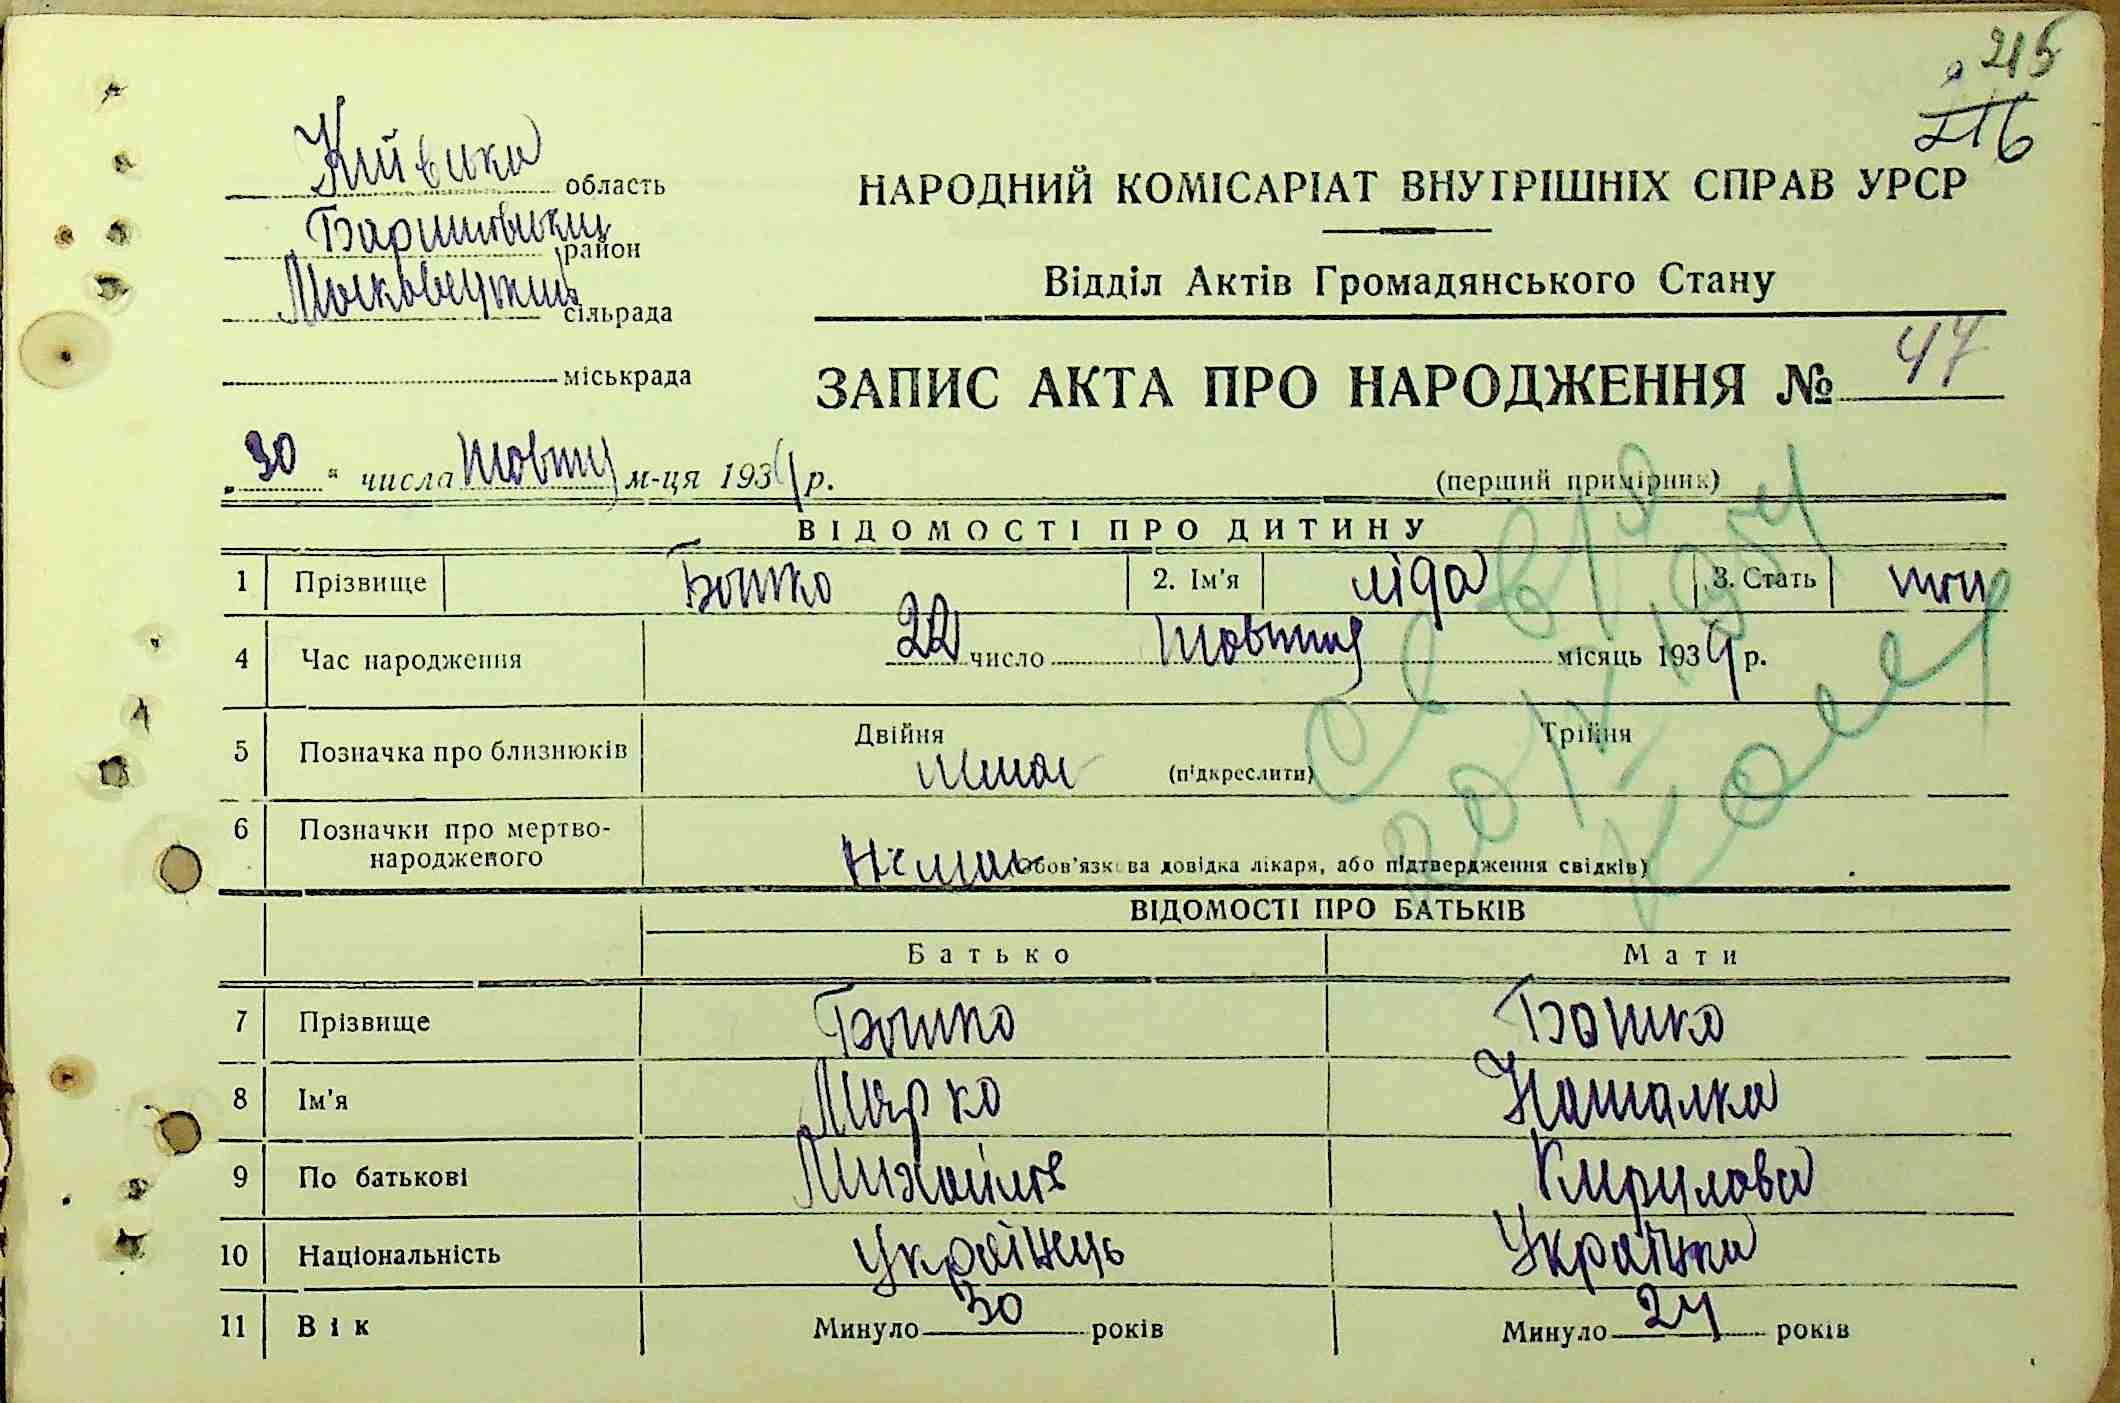 215
216
Київська область
Баришівський район
Московецький сільрада
міськрада
НАРОДНИЙ КОМІСАРІАТ ВНУТРІШНІХ СПРАВ УРСР
Відділ Актів Громадянського Стану
ЗАПИС АКТА ПРО НАРОДЖЕННЯ № 47
„30“ числа жовтня м-ця 1939 р.
(перший примірник)
ВІДОМОСТІ ПРО ДИТИНУ
1 Прізвище Бошко 2. Ім'я Ліда 3. Стать жін
4 Час народження 22 число жовтня місяць 1939 р.
5 Позначка про близнюків Двійня Трійня
немає (підкреслити)
6 Позначки про мертво-
народженого Немає Обов'язкова довідка лікаря, або підтвердження свідків)
ВІДОМОСТІ ПРО БАТЬКІВ
Батько Мати
7 Прізвище Бошко Бошко
8 Ім'я Марко Наталка
9 По батькові Михайлов Кирилова
10 Національність Українець Українка
11 Вік Минуло 30 років Минуло 24 років